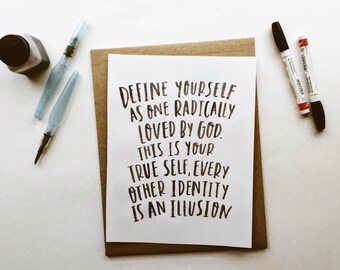 DEFINE YOURSELF
AS ONE RADICALLY
LOVED BY GOD.
THIS IS YOUR
TRUE SELF, EVERY
OTHER IDENTITY
IS AN ILLUSION